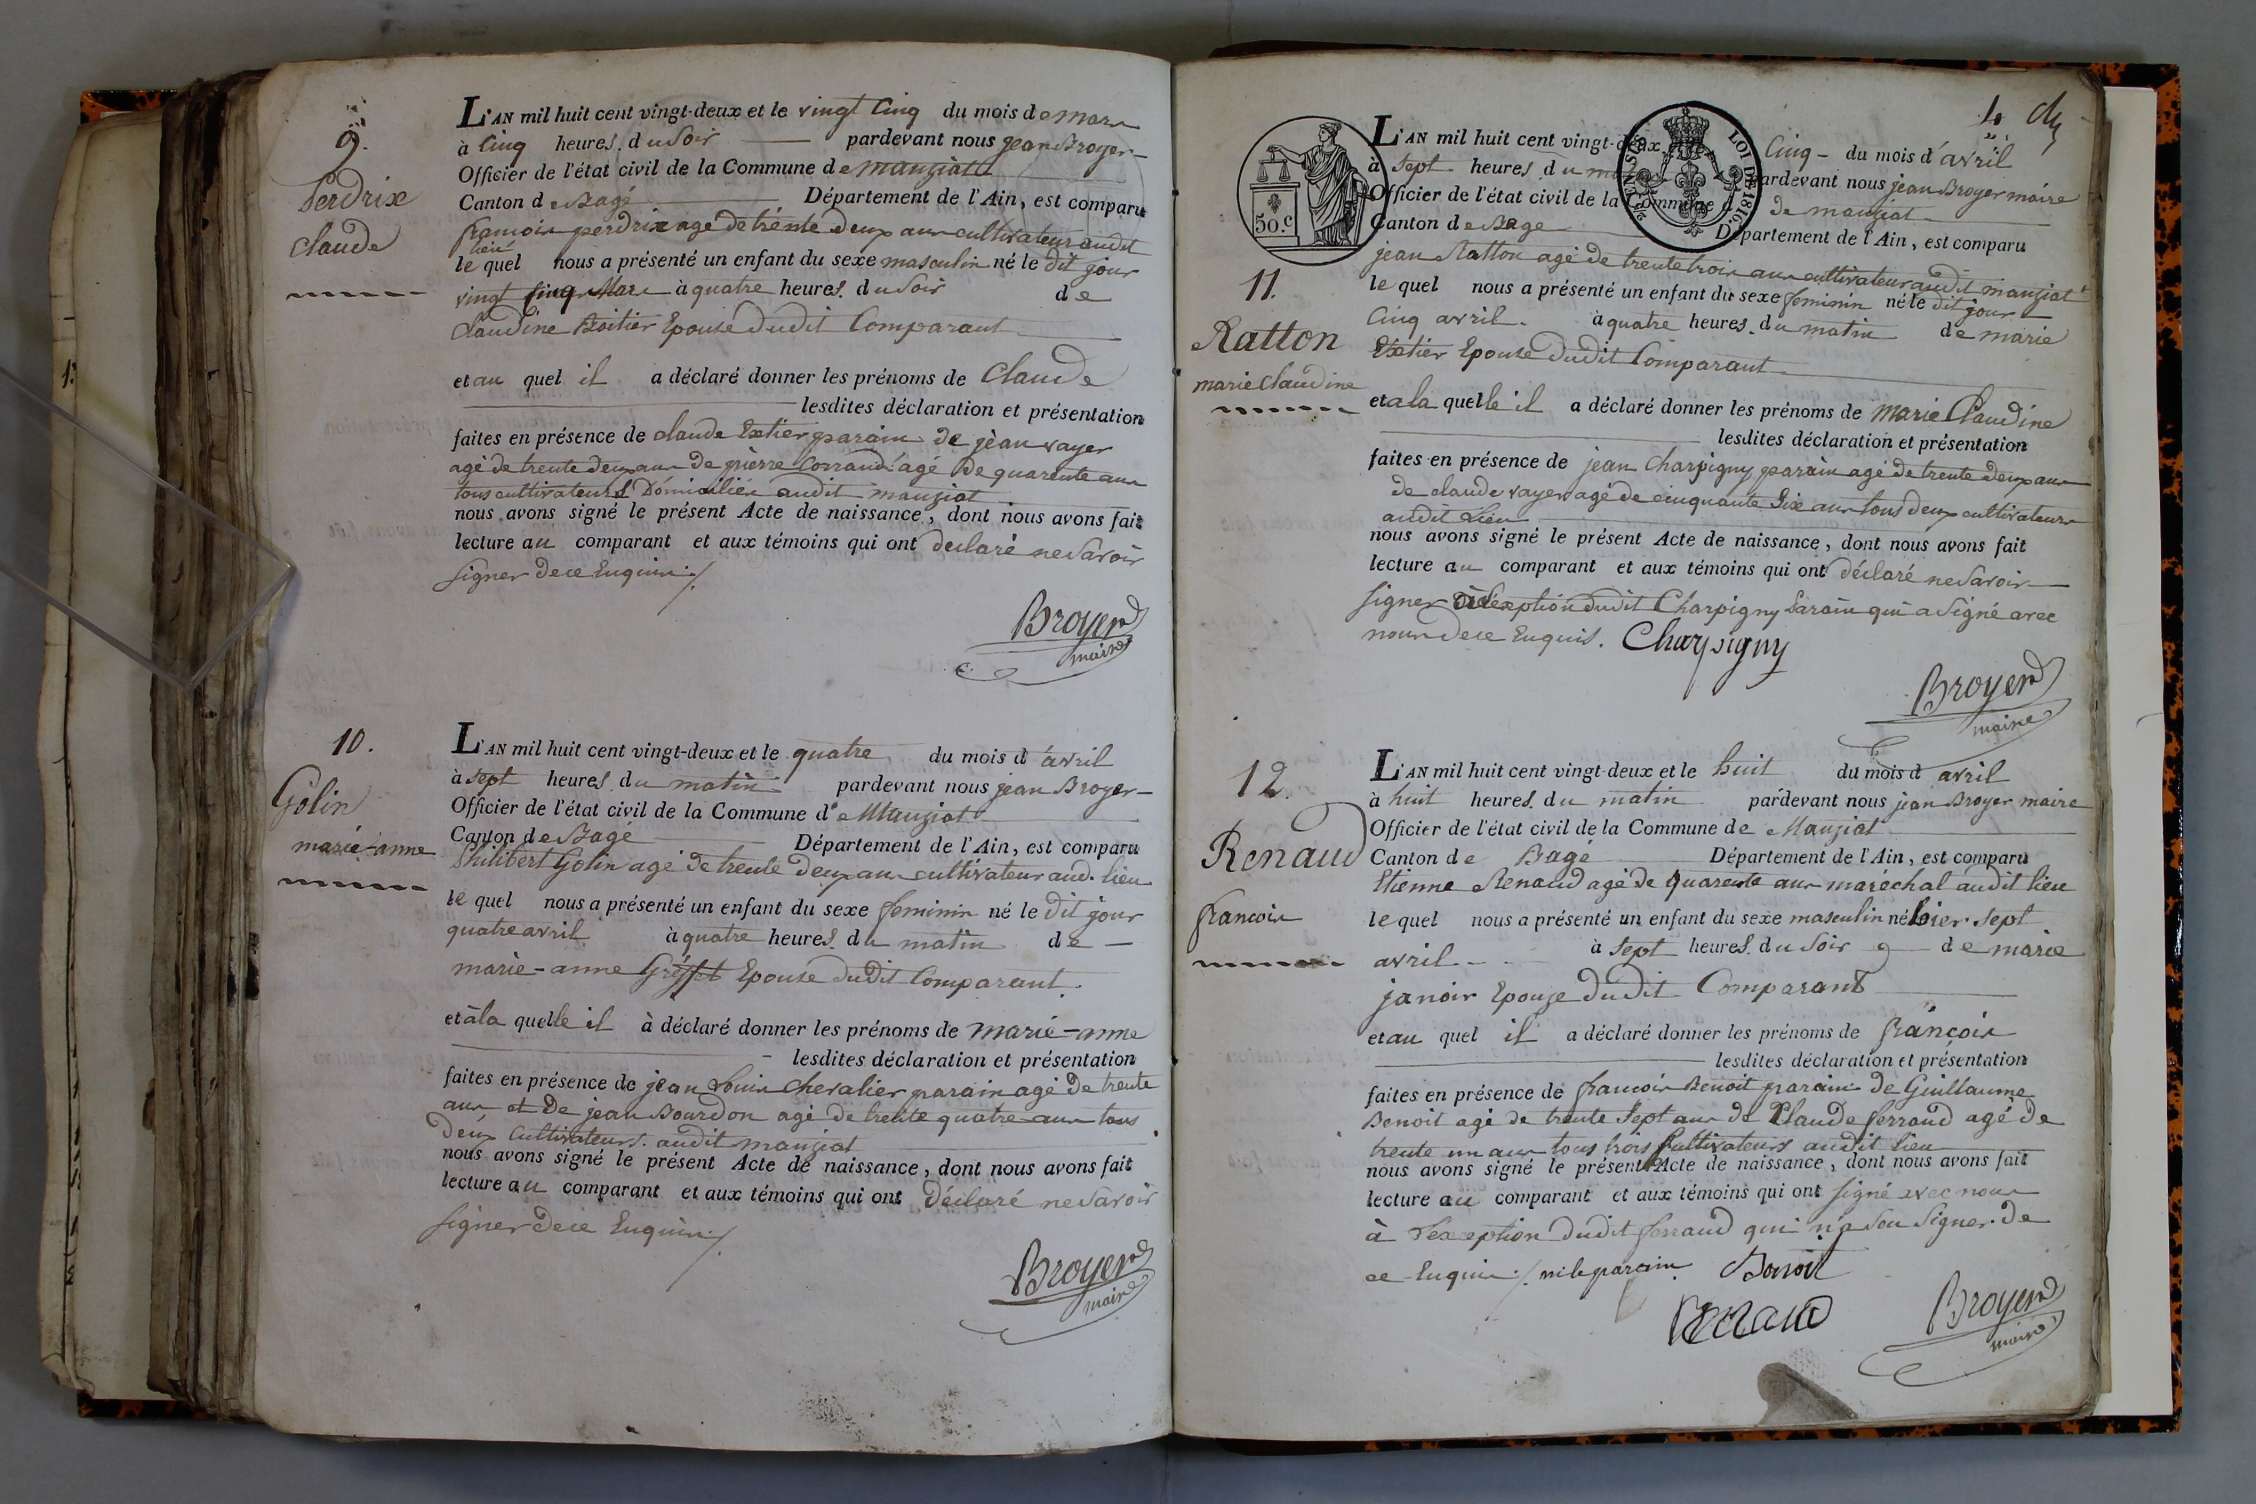 9.
Perdrix
claude
L'AN mil huit cent vingt-deux et le vingt Cinq du mois de mars
à Cinq heures du Soir pardevant nous jean Broyer
Officier de l'état civil de la Commune de manziat
Canton de Bagé Département de l'Ain, est comparu
francois perdrix agé de trente deux ans cultivateur audit
lieu
le quel nous a présenté un enfant du sexe masculin né le dit jour
vingt Cinq Mars à quatre heures du Soir de
Claudine Boitier Epouse dudit Comparant
et au quel il a déclaré donner les prénoms de Claude
lesdites déclaration et présentation
faites en présence de claude Extier parain de jean vayer
agé de trente deux ans de pierre Corrand agé de quarente ans
tous cultivateurs Domiciliés audit manziat
nous avons signé le présent Acte de naissance, dont nous avons fait
lecture au comparant et aux témoins qui ont declaré ne Savoir
signer de ce Enquis ./.
Broyer
maire
10.
Golin
marie-anne
L'AN mil huit cent vingt-deux et le quatre du mois d'avril
à sept heures du matin pardevant nous jean Broyer
Officier de l'état civil de la Commune de Manziat
Canton de Bagé Département de l'Ain, est comparu
Philibert Golin agé de trente deux ans cultivateur aud. lieu
le quel nous a présenté un enfant du sexe feminin né le dit jour
quatre avril à quatre heures du matin de
marie-anne Greffet Epouse dudit Comparant
et à la quelle il à déclaré donner les prénoms de marie-anne
lesdites déclaration et présentation
faites en présence de jean Louis chevalier parain agé de trente
ans et De jean Bourdon agé de trente quatre ans tous
deux Cultivateurs audit manziat
nous avons signé le présent Acte de naissance, dont nous avons fait
lecture au comparant et aux témoins qui ont déclaré ne Savoir
signer de ce Enquis ./.
Broyer
maire
10
50.c
LOI DE 1816.
11.
Ratton
marie Claudine
L'AN mil huit cent vingt-deux Cinq du mois d'avril
à sept heures du matin pardevant nous jean Broyer maire
Officier de l'état civil de la Commune de manziat
Canton de Bage Département de l'Ain, est comparu
jean Ratton agé de trente trois ans cultivateur audit manziat
le quel nous a présenté un enfant du sexe feminin né le dit jour
Cinq avril à quatre heures du matin de marie
Extier Epouse dudit Comparant
et a la quelle il a déclaré donner les prénoms de marie Claudine
lesdites déclaration et présentation
faites en présence de jean Charpigny parain agé de trente deux ans
de claude vayer agé de cinquante Six ans tous deux cultivateurs
audit Lieu
nous avons signé le présent Acte de naissance, dont nous avons fait
lecture au comparant et aux témoins qui ont déclaré ne Savoir
signer à l'exeption dudit Charpigny Parain qui a Signé avec
nous de ce Enquis. Charpigny
Broyer
maire
12.
Renaud
francois
L'AN mil huit cent vingt-deux et le huit du mois d avril
à huit heures du matin pardevant nous jean Broyer maire
Officier de l'état civil de la Commune de Manziat
Canton de Bagé Département de l'Ain, est comparu
Etienne Renaud agé de quarente ans maréchal audit lieu
le quel nous a présenté un enfant du sexe masculin né hier sept
avril à sept heures du Soir de marie
janoir Epouze dudit Comparant
et au quel il a déclaré donner les prénoms de francois
lesdites déclaration et présentation
faites en présence de francois Benoit parain de Guillaume
Benoit agé de trente Sept ans de Claude ferraud agé de
trente un ans tous trois Cultivateurs audit lieu
nous avons signé le présent Acte de naissance, dont nous avons fait
lecture au comparant et aux témoins qui ont signé avec nous
à l'exception dudit ferraud qui n'a Sou Signer de
ce Enquis ./. ni le parain Benoit
Renaud
Broyer
maire